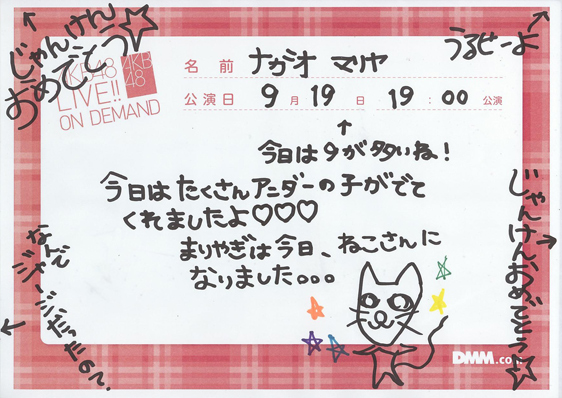 じゃんけん
おめでとう☆
うるせーよ
AKB48
LIVE!!
ON DEMAND
AKB
48
名前 ナガオ マリヤ
公演日 9月19日 19:00公演
↑
今日は9が多いね！
今日はたくさんアンダーの子がでて
くれましたよ♡♡♡
まりやぎは今日、ねこさんに
なりました。。。
じゃんけんおめでとう☆
なんで
ジャージだったの？、
DMM.com